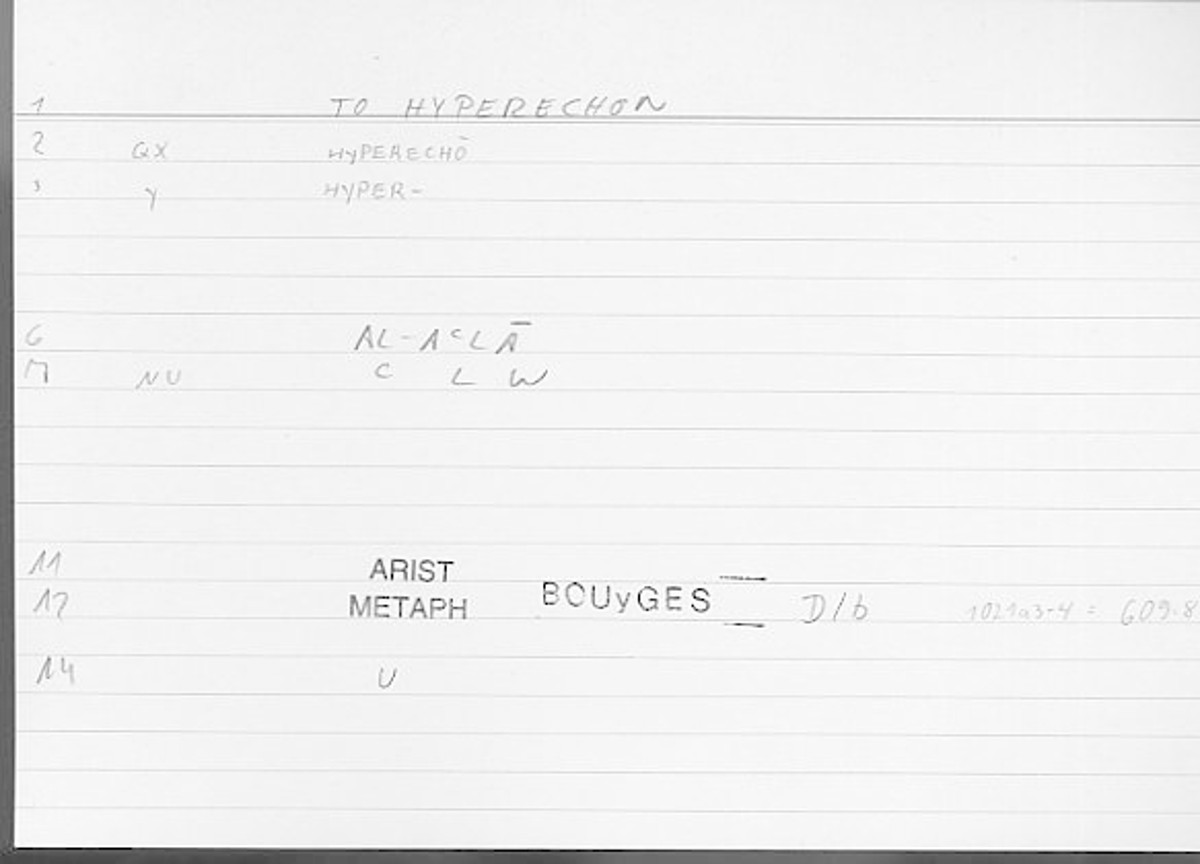 1 TO HYPERECHON
2 QX HYPERECHŌ
3 Y HYPER-
6 AL-AᶜLĀ
7 NU C L W
11 ARIST
12 METAPH BOUyGES D/b 1021a3-4 = 609.8
14 U